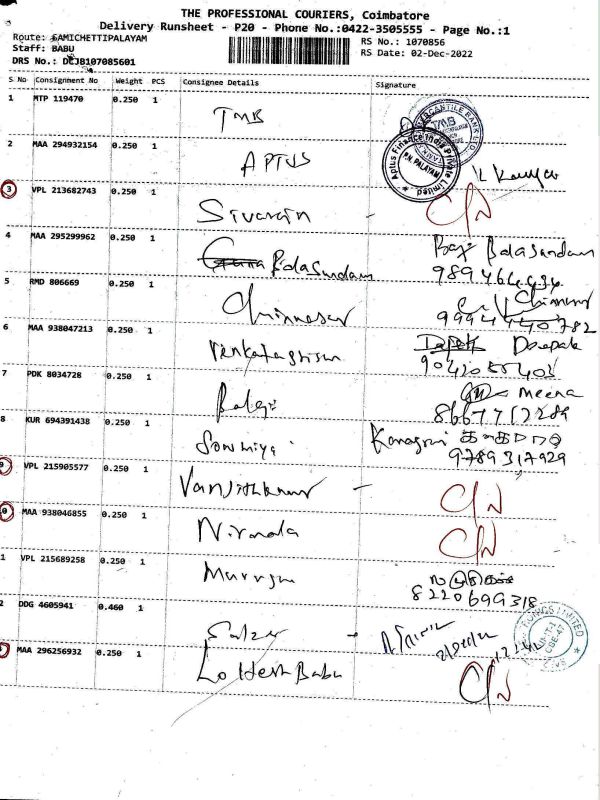 THE PROFESSIONAL COURIERS, Coimbatore
Delivery Runsheet - P20 - Phone No.:0422-3505555 - Page No.:1
Route: SAMICHETTIPALAYAM
RS No.: 1070856
Staff: BABU
RS Date: 02-Dec-2022
DRS No.: DCJB107085601
S No Consignment No Weight PCS Consignee Details Signature
1 MTP 119470 0.250 1 TMB
2 MAA 294932154 0.250 1 APTUS
Aptus Finance India Private Limited
3 VPL 213682743 0.250 1 - C/N
4 MAA 295299962 0.250 1 BalaSundam Balasundam
5 RMD 806669 0.250 1
9994440782
6 MAA 938047213 0.250 1 Deepak
7 PDK 8034728 0.250 1 Balaji Meena
8 KUR 694391438 0.250 1 Sowmiya
9789317929
9 VPL 215905577 0.250 1 - C/N
0 MAA 938046855 0.250 1 Nirmala C/N
1 VPL 215689258 0.250 1 Murugan
8220699318
2 DDG 4605941 0.460 1 -
MAA 296256932 0.250 1 Babu C/N